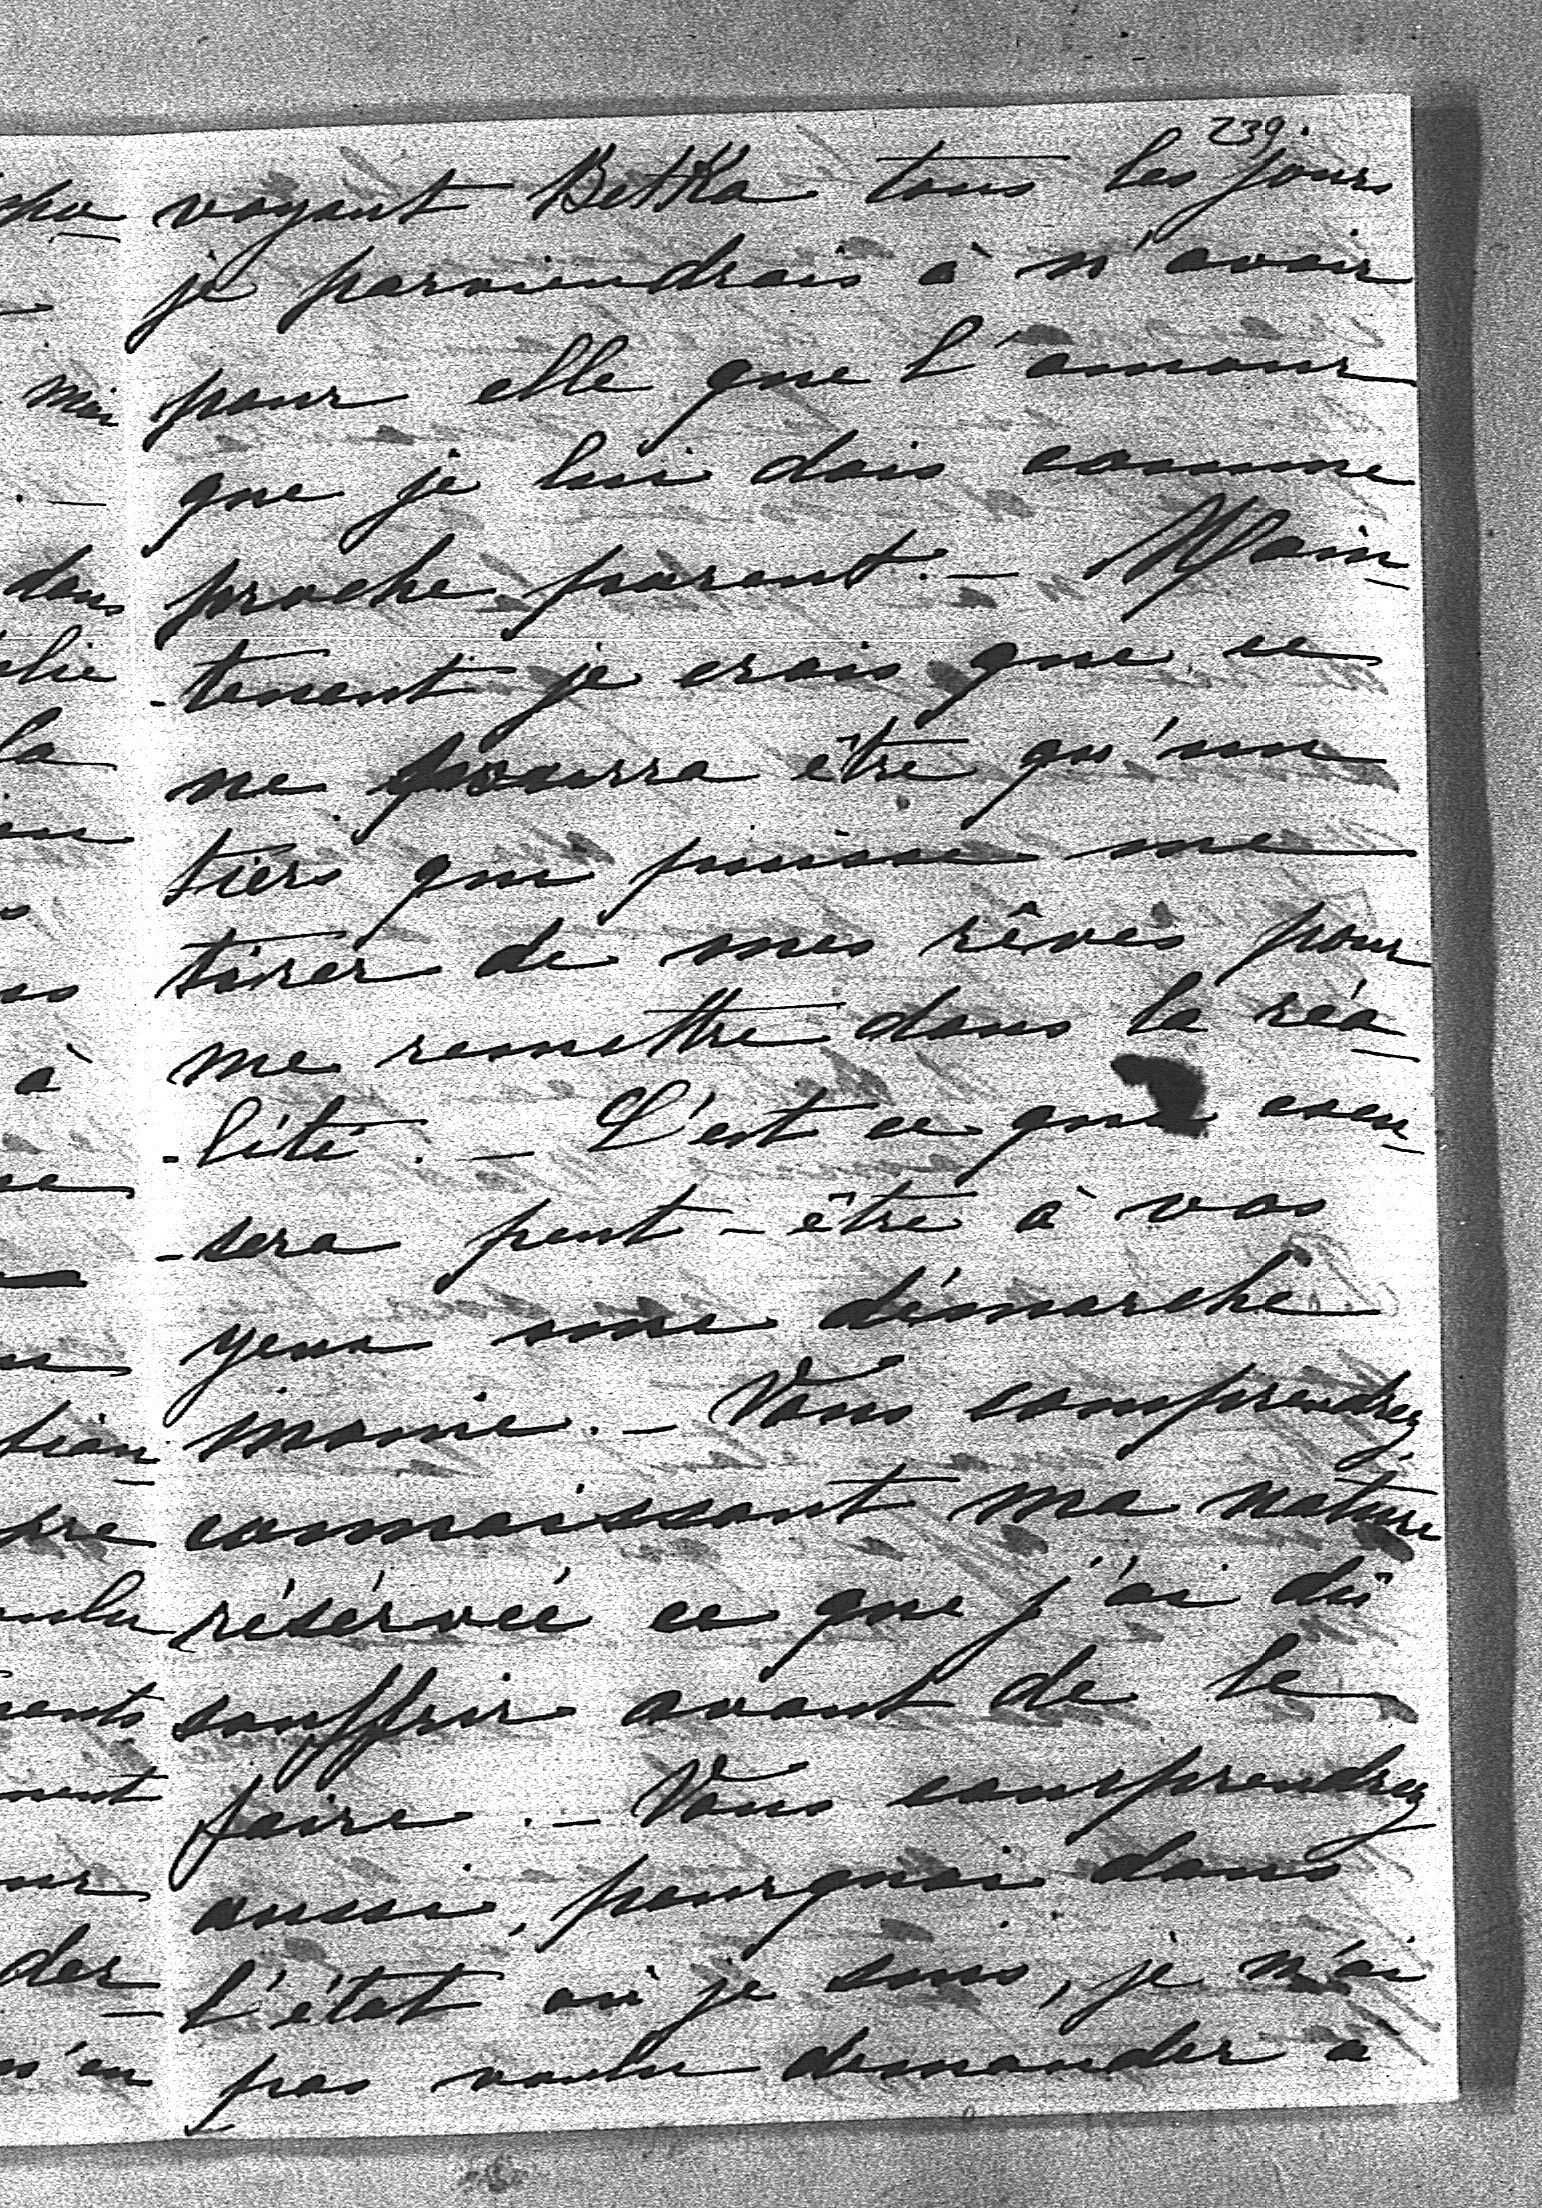 239.
voyant Betka tous les jours
je parviendrais à n'avoir
pour elle que l'amour
que je lui dois comme
proche parent. — Main
-tenant je crois que ce
ne pourra être qu'un
tiers qui puisse me
tirer de mes rêves pour
me remettre dans la réa
-lité. — C'est ce qui excu
-sera peut-être à vos
yeux ma démarche
inouie. — Vous comprendrez
connaissant ma nature
réservée ce que j'ai dû
souffrir avant de le
faire. — Vous comprendrez
aussi, pourquoi dans
l'état où je suis, je n'ai
pas voulu demander à
dans
la
à
der